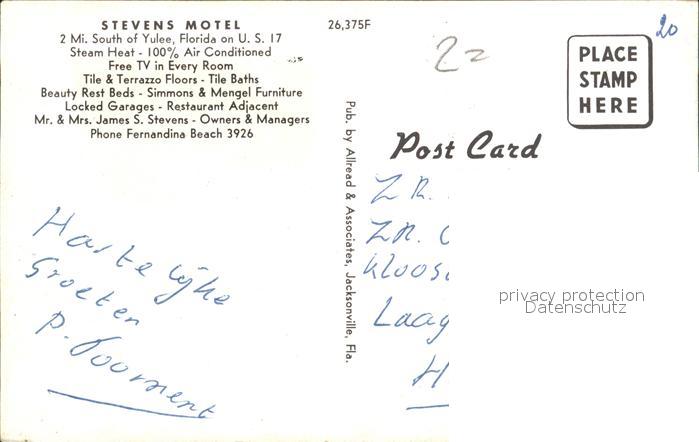 STEVENS MOTEL
2 Mi. South of Yulee, Florida on U. S. 17
Steam Heat - 100% Air Conditioned
Free TV in Every Room
Tile & Terrazzo Floors - Tile Baths
Beauty Rest Beds - Simmons & Mengel Furniture
Locked Garages - Restaurant Adjacent
Mr. & Mrs. James S. Stevens - Owners & Managers
Phone Fernandina Beach 3926
Hartelijke
Groeten
P.
26,375F
Pub. by Allread & Associates, Jacksonville, Fla.
22
20
PLACE
STAMP
HERE
Post Card
Z.R.
Z.R.
Kloos
Laag
H
privacy protection
Datenschutz